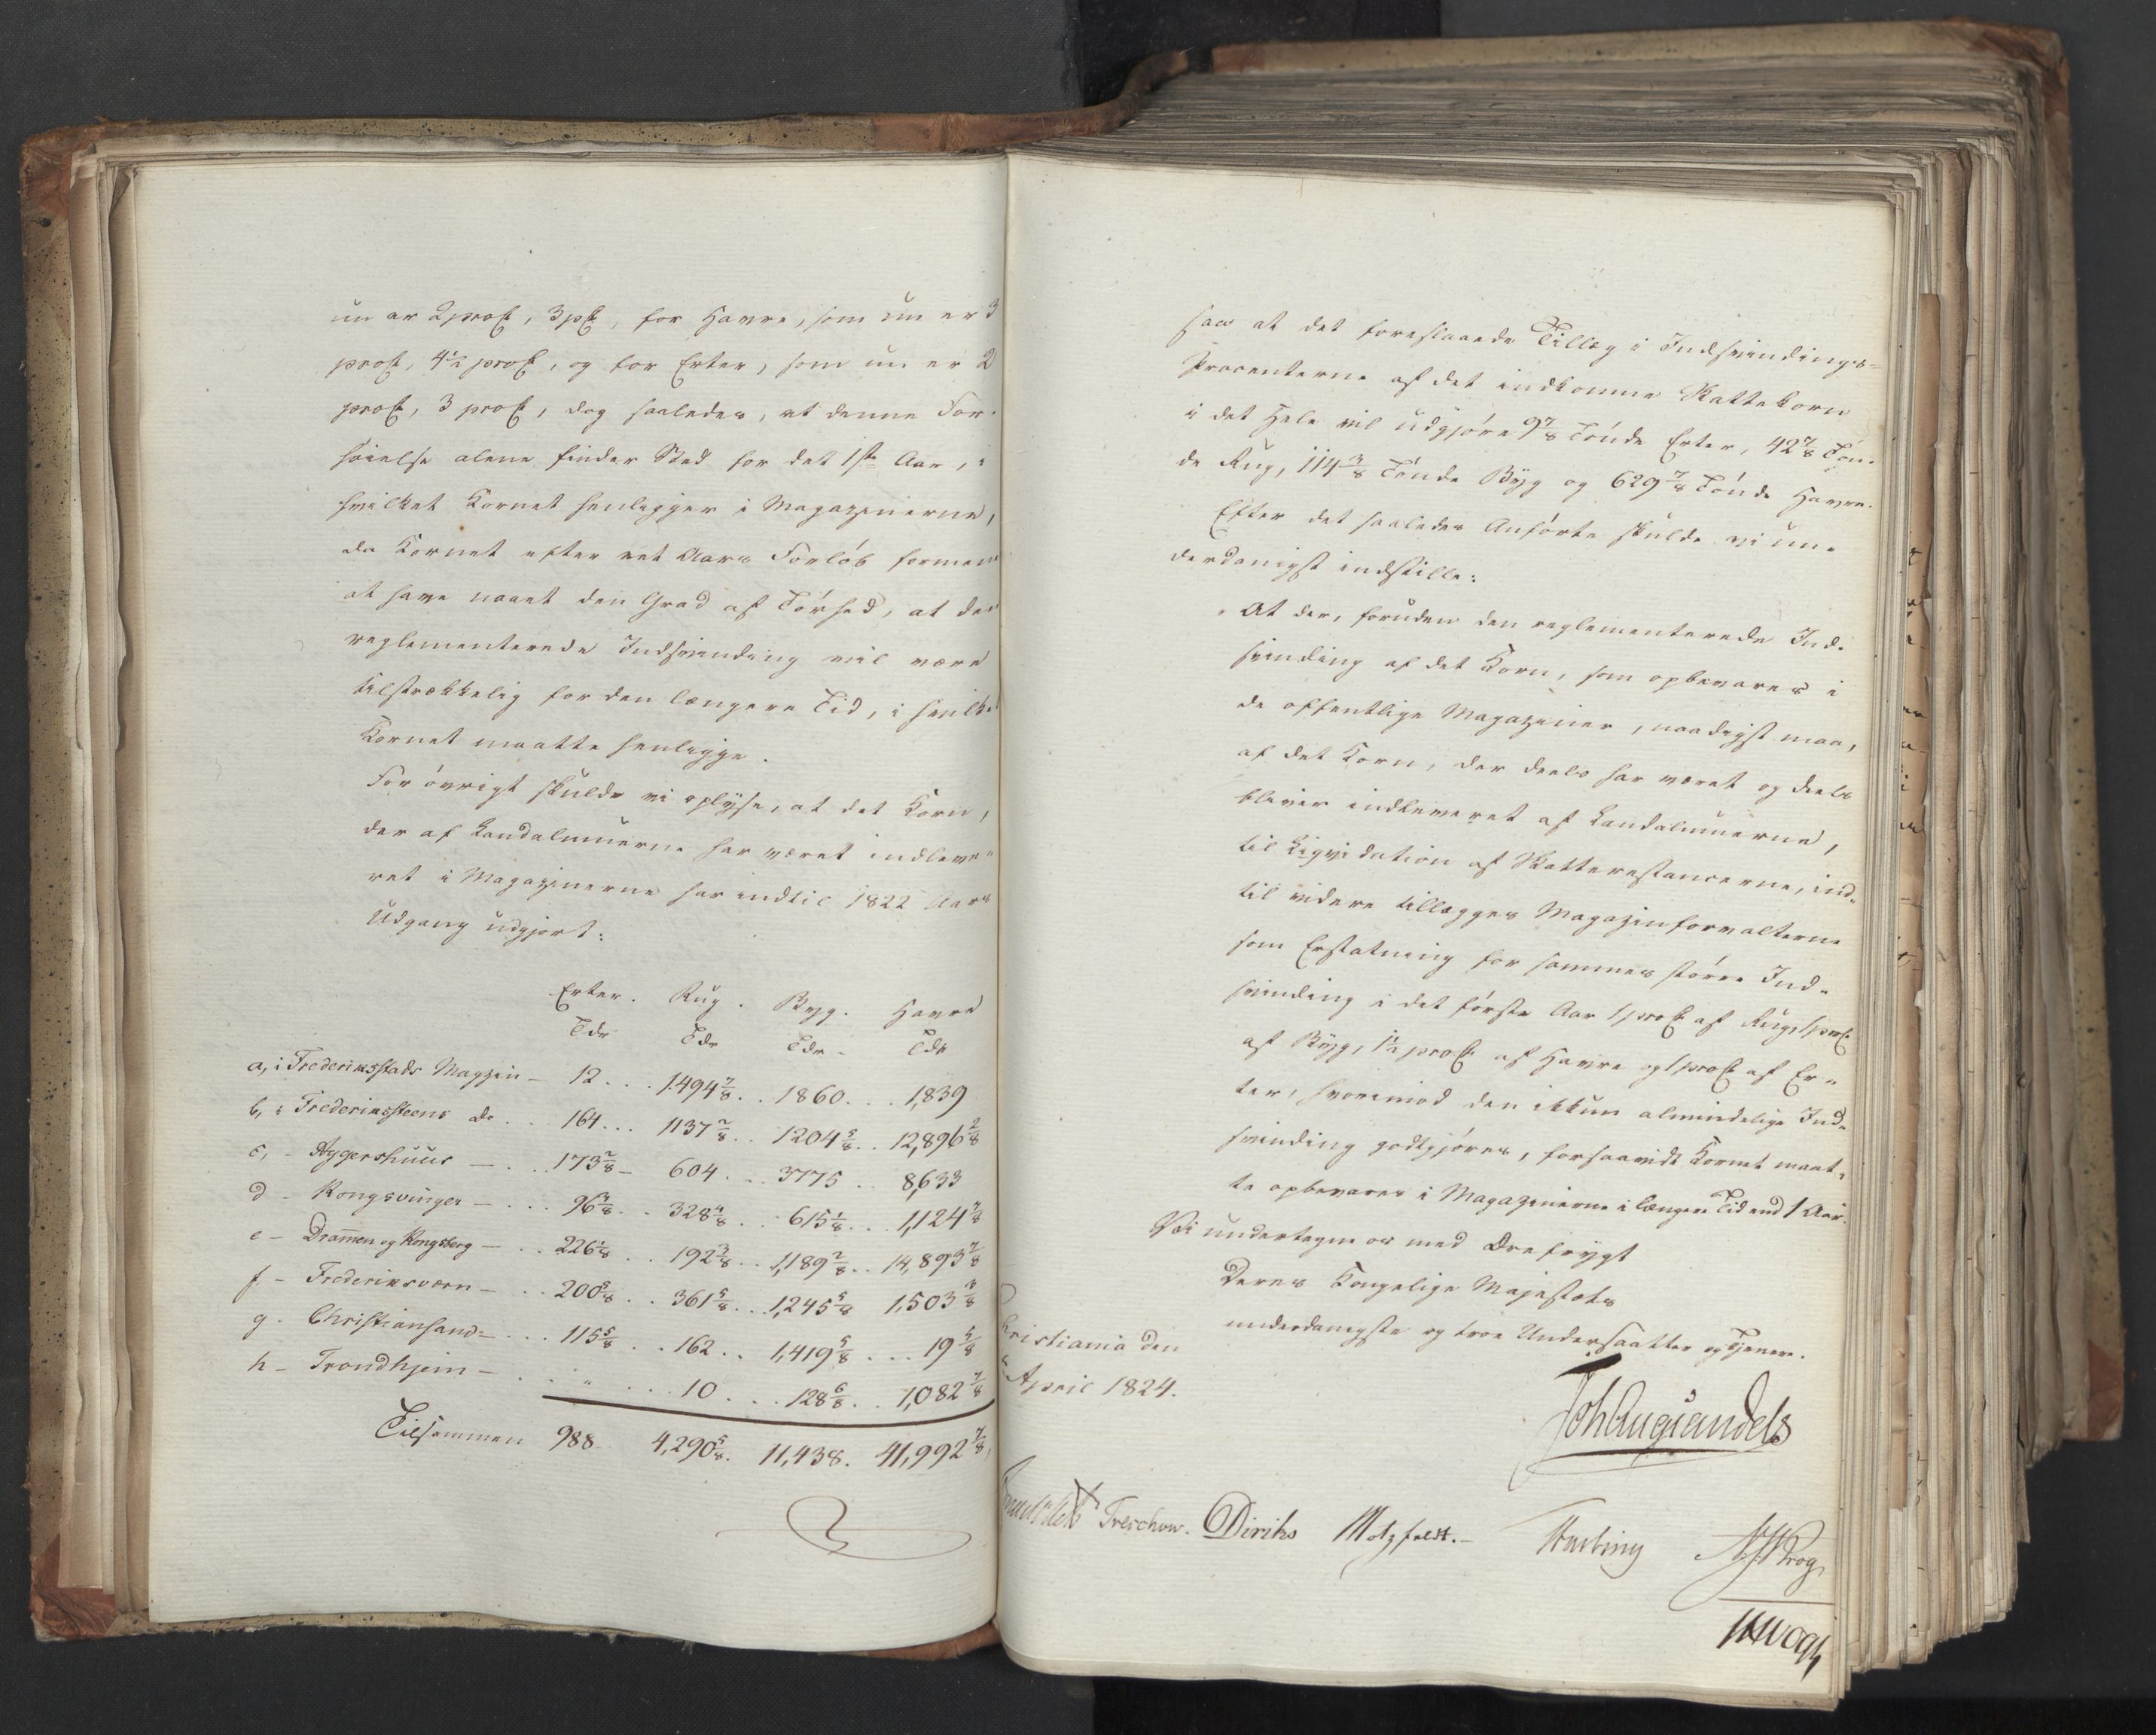 nu er 2 proCt, 3 pCt, for Havre, som nu er 3
proCt, 4½ proCt, og for Erter, som nu er 2
proCt, 3 proCt, dog saaledes, at denne For-
høielse alene finder Sted for det 1ste Aar, i
hvilket Kornet henligger i Magazinerne,
da Kornet efter eet Aars Forløb formen
at have naaet den Grad af Tørhed, at den
reglementerede Indsvinding vil være
tilstrækkelig for den længere Tid, i hvilke
Kornet maatte henligge.
For øvrigt skulde vi oplyse, at det Korn,
der af Landalmuerne har været indleve-
ret i Magazinerne har indtil 1822 Aars
Udgang udgjort:
Erter. Rug. Byg. Havre
Tdr Tdr Tdr Tdr
a, i Frederiksstads Magzin — 12 . . . 1494 7/8 . . 1860 . . . 1,839
b, i Frederikssteens do . . . 164 . . . 1137 2/8 . . 1204 5/8 . . 12,896 2/8
c, - Aggershuus — . . 173 2/8 — 604 . . . 3775 . . 8,633
d - Kongsvinger — . . . 96 3/8 . . 328 4/8 . . 615 1/8 . . . 1,124 7/8
e - Drammen og Kongsberg — . . 226 1/8 . . 192 3/8 . . 1,189 2/8 . . 14,893 7/8
f - Frederiksværn — . . 200 5/8 . . 361 5/8 . . 1,245 5/8 1,503 3/8
g - Christiansand — . . . 115 5/8 . . 162 . . 1,419 5/8 . . . 19 5/8
h - Trondhjem — . . . " . . . 10 . . . 128 6/8 . . 1,082 7/8
Tilsammen 988 4,290 5/8. 11,438. 41,992 7/8
saa at det foreslaaede Tillæg i Indsvindings-
Procenterne af det indkomne Skattekorn
i det Hele vil udgjøre 9 7/8 Tønde Erter, 42 7/8 Tøn-
de Rug, 114 3/8 Tønde Byg og 629 7/8 Tønde Havre.
Efter det saaledes Anførte skulde vi un-
derdanigst indstille:
"At der, foruden den reglementerede Ind-
svinding af det Korn, som opbevares i
de offentlige Magaziner, naadigst maa,
af det Korn, der deels har været og deels
bliver indleveret af Landalmuerne,
til Liqvidation af Skatterestancerne, ind-
til videre tillægges Magazinforvalterne
som Erstatning for sammes større Ind-
svinding i det første Aar 1 proCt af Rug, 1 proCt
af Byg, 1½ proCt af Havre og 1 proCt af Er-
ter, hvorimod den ikkun almindelige Ind-
svinding godtgjøres, forsaavidt Kornet maat-
te opbevares i Magazinerne i længere Tid end 1 Aar.
Vi undertegne os med Ærefrygt
Deres Kongelige Majestæts
underdanigste og troe Undersaatter og Tjenere.
Christiania den
April 1824.
Joh Aug Sandels
Treschow. Diriks Motzfeldt. —